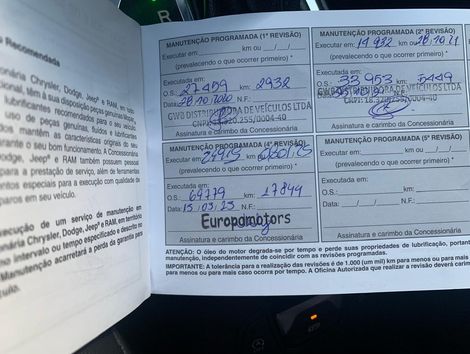 e Recomendada
onária Chrysler, Dodge, Jeep® e RAM, em todo
ional, têm à sua disposição peças genuínas Mopar,
lubrificantes recomendados para o seu veículo.
uso de peças genuínas, fluidos e lubrificantes
dos mantém as características originais do seu
arante o seu bom funcionamento. A Concessionária
odge, Jeep® e RAM também possuem pessoal
ara a prestação de serviço, além de ferramentas
entos especiais para a execução com qualidade de
paros em seu veículo.
xecução de um serviço de manutenção em
nária Chrysler, Dodge, Jeep® e RAM, em território
no intervalo ou tempo especificado e descrito no
Manutenção acarretará a perda da garantia para
culo.
MANUTENÇÃO PROGRAMADA (1ª REVISÃO)
Executar em: km ou / /
(prevalecendo o que ocorrer primeiro) *
Executada em:
O.S.: 27459 km: 2932
Data: 28/10/2020 N.F.:
GWB DISTRIBUIDORA DE VEÍCULOS LTDA
Assinatura e carimbo da Concessionária
MANUTENÇÃO PROGRAMADA (2ª REVISÃO)
Executar em: 14.932 km ou 28/10/21
(prevalecendo o que ocorrer primeiro) *
Executada em:
O.S.: 33953 km: 5449
GWB DISTRIBUIDORA DE VEÍCULOS LTDA
Assinatura e carimbo da Concessionária
MANUTENÇÃO PROGRAMADA (4ª REVISÃO)
Executar em: km ou
(prevalecendo o que ocorrer primeiro) *
Executada em:
O.S.: 69779 km: 27844
Data: 15/03/23 N.F.:
Europamotors
Assinatura e carimbo da Concessionária
MANUTENÇÃO PROGRAMADA (5ª REVISÃO)
Executar em: km ou / /
(prevalecendo o que ocorrer primeiro) *
Executada em:
O.S.: km:
Data: / / N.F.:
Assinatura e carimbo da Concessionária
ATENÇÃO: O óleo do motor degrada-se por tempo e perde suas propriedades de lubrificação, portan
manutenção, independentemente de coincidir com as revisões programadas.
IMPORTANTE: A tolerância para a realização das revisões é de 1.000 (um mil) km para menos ou para mais
para menos ou para mais caso ocorra por tempo. A Oficina Autorizada que realizar a revisão deverá carim